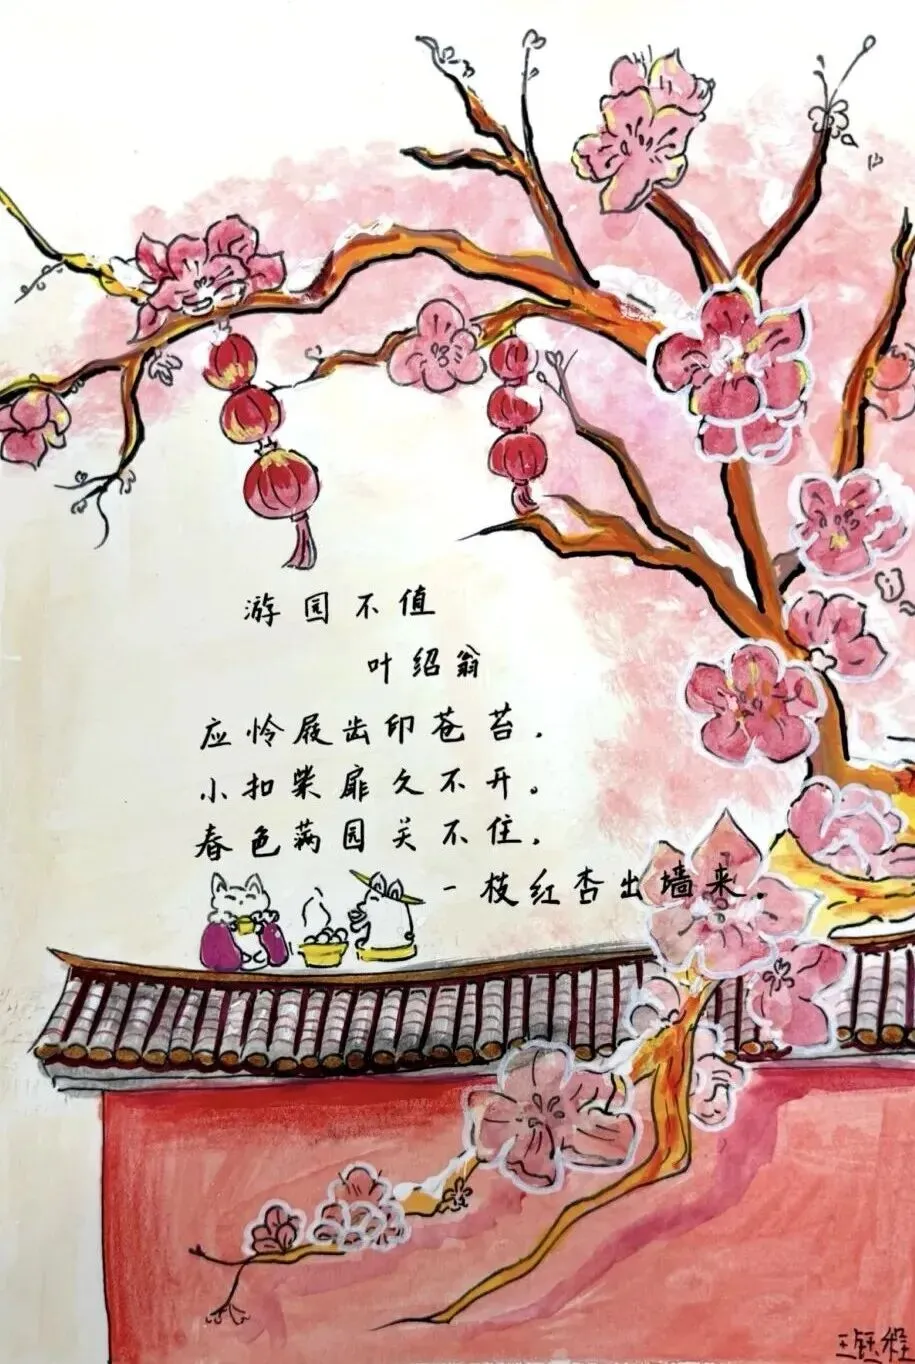 游园不值
叶绍翁
应怜屐齿印苍苔，
小扣柴扉久不开。
春色满园关不住，
一枝红杏出墙来．
王钰程